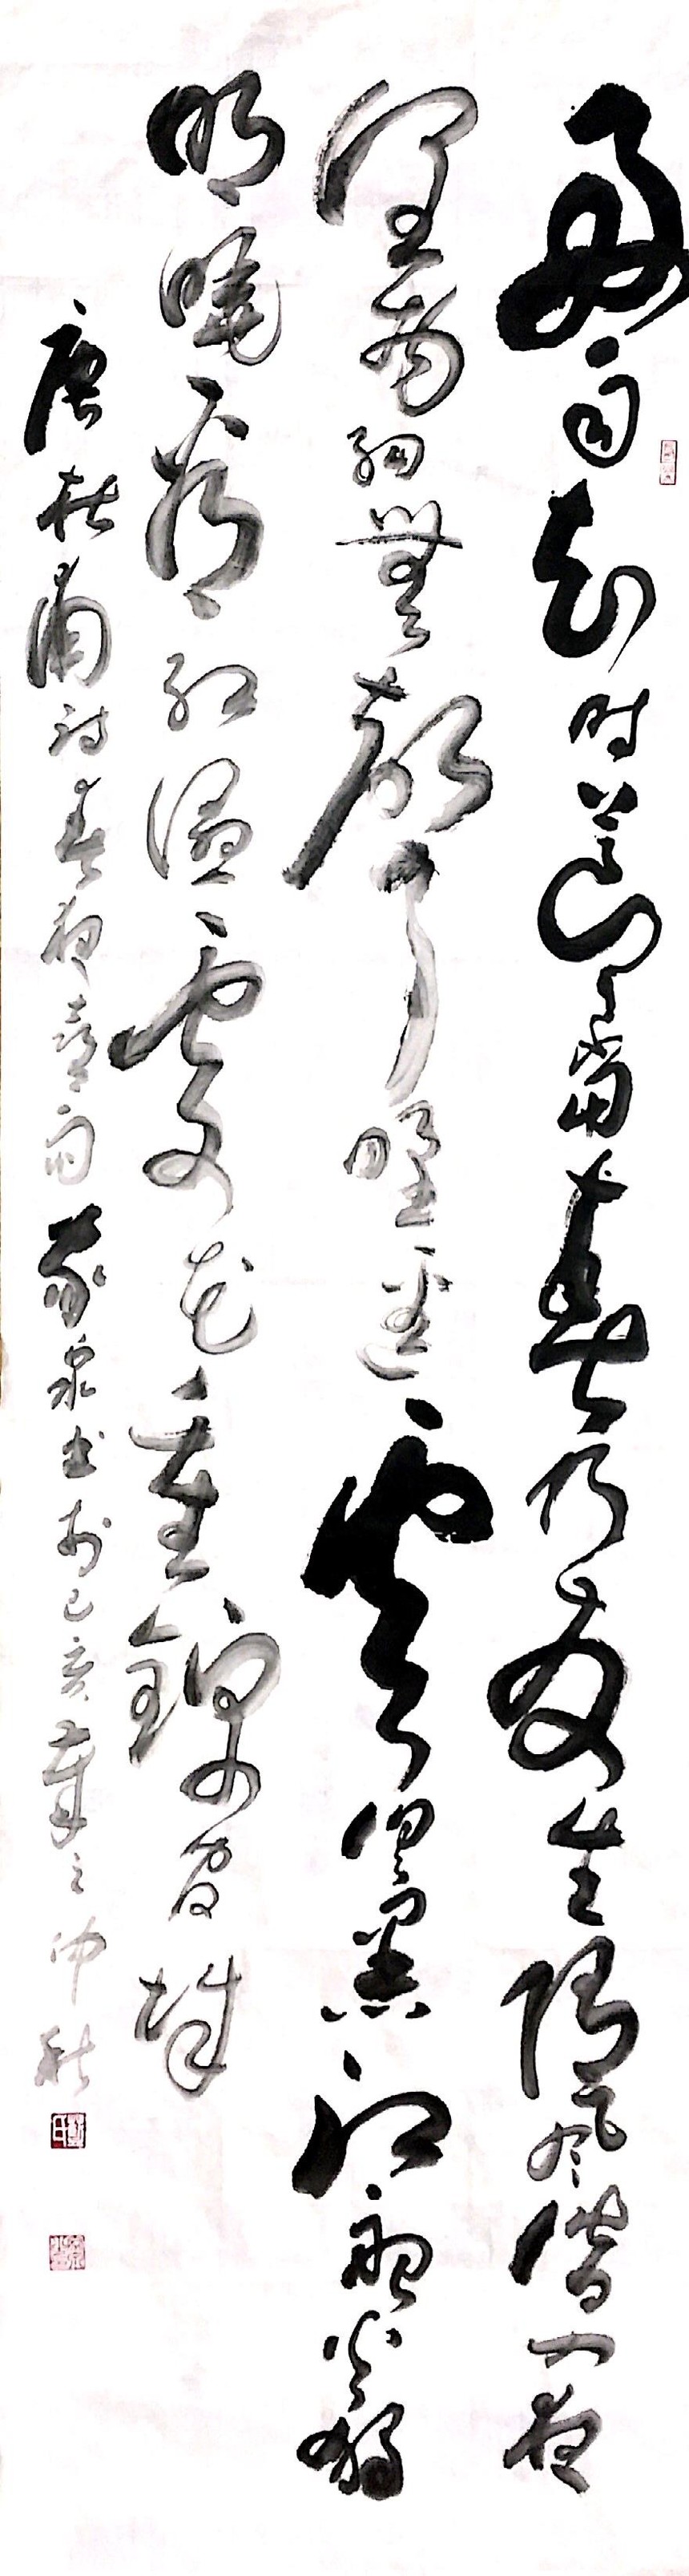 好雨知时节當春乃發生随风潜入夜
润物细無声野径云俱黑江船火独
明曉看红湿處花重錦官城
唐杜甫诗春夜喜雨泉书於己亥年之仲秋